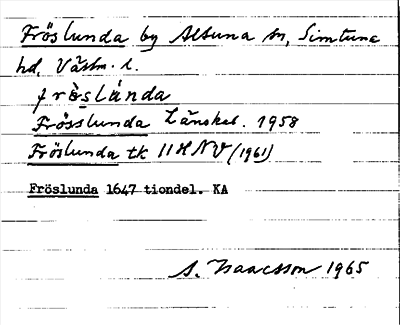 Fröslunda by Altuna sn, Simtuna
hd, Västm. l.
frὼslánda
Frösslunda Länskal. 1958
Fröslunda tk 11H NV (1961)
Fröslunda 1647 tiondel. KA
S. Isaacsson 1965